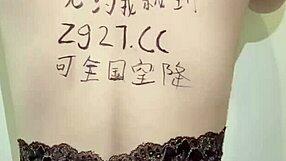 约我
Z927.CC
可全国空降